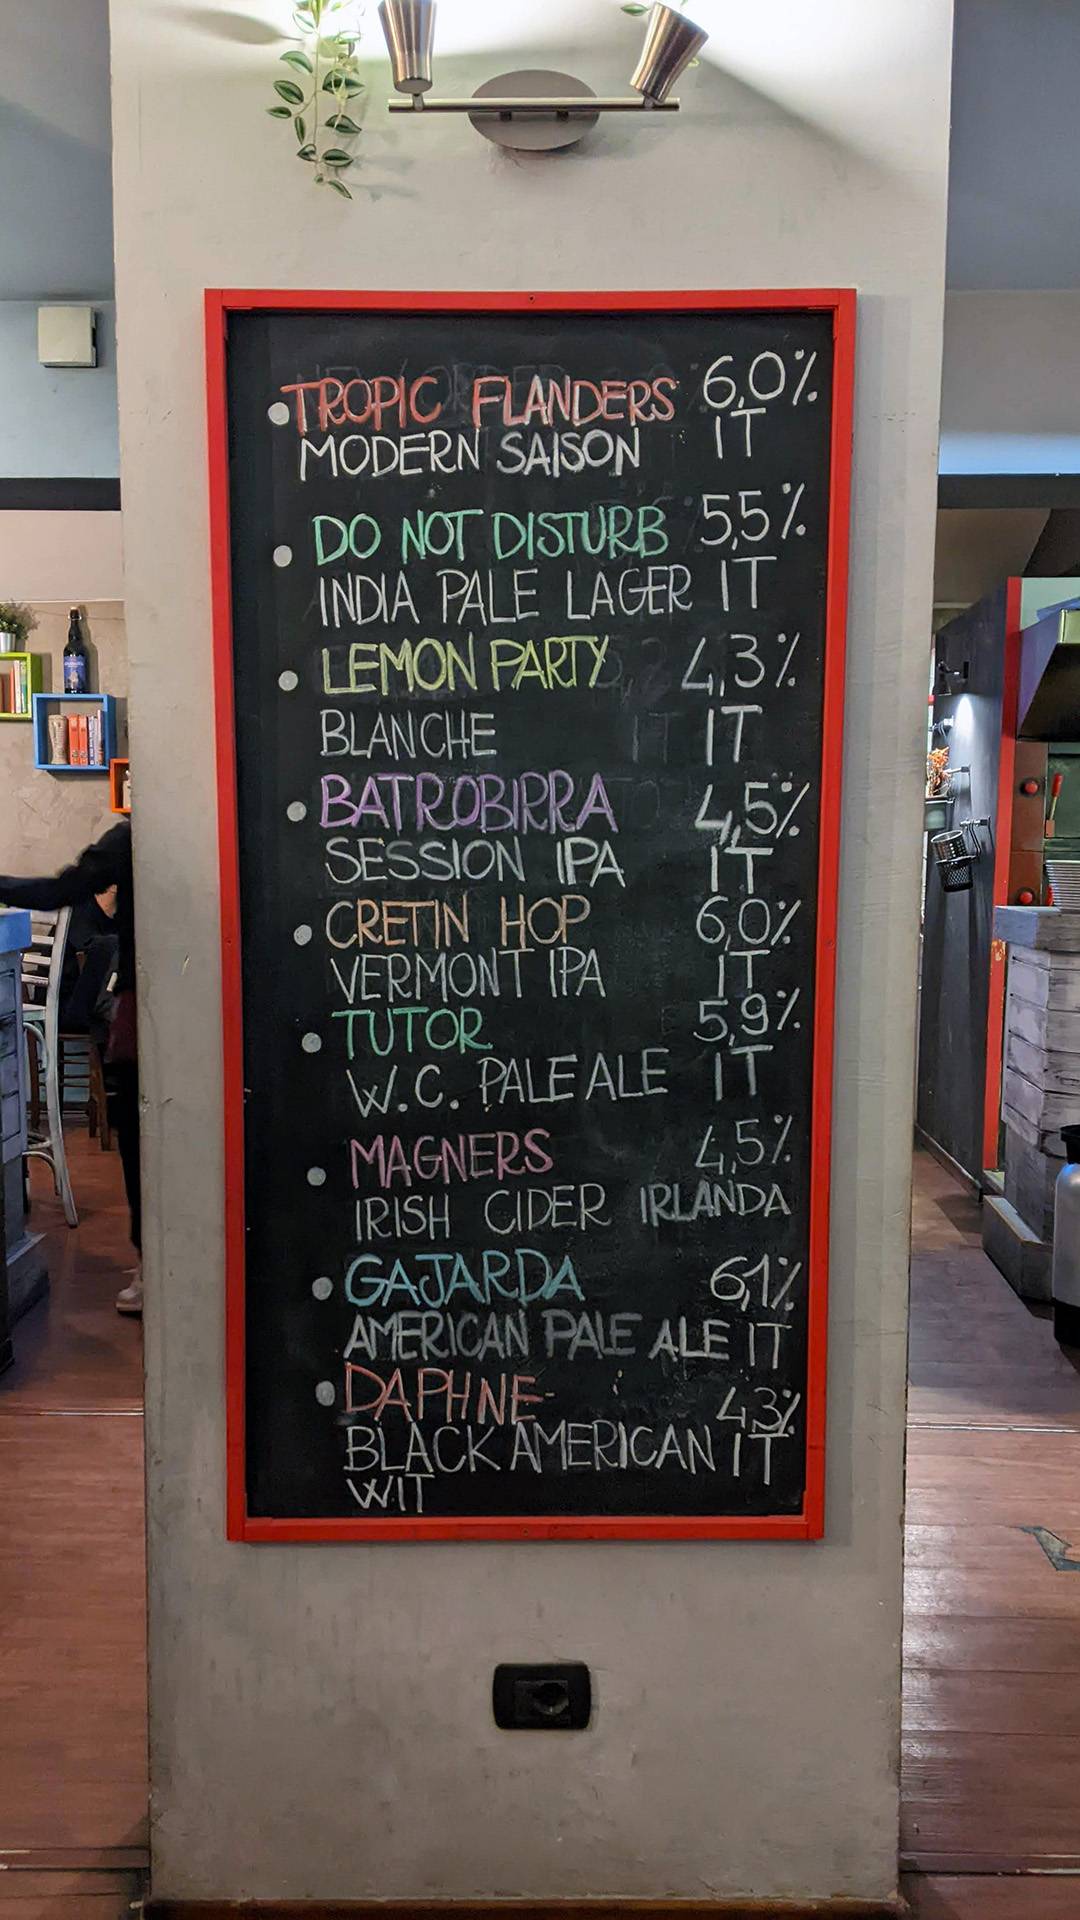 TROPIC FLANDERS 6,0%
MODERN SAISON IT
DO NOT DISTURB 5,5%
INDIA PALE LAGER IT
LEMON PARTY 4,3%
BLANCHE IT
BATROBIRRA 4,5%
SESSION IPA IT
CRETIN HOP 6,0%
VERMONT IPA IT
TUTOR 5,9%
W.C. PALE ALE IT
MAGNERS 4,5%
IRISH CIDER IRLANDA
GAJARDA 6,1%
AMERICAN PALE ALE IT
DAPHNE 4,3%
BLACK AMERICAN IT
WIT